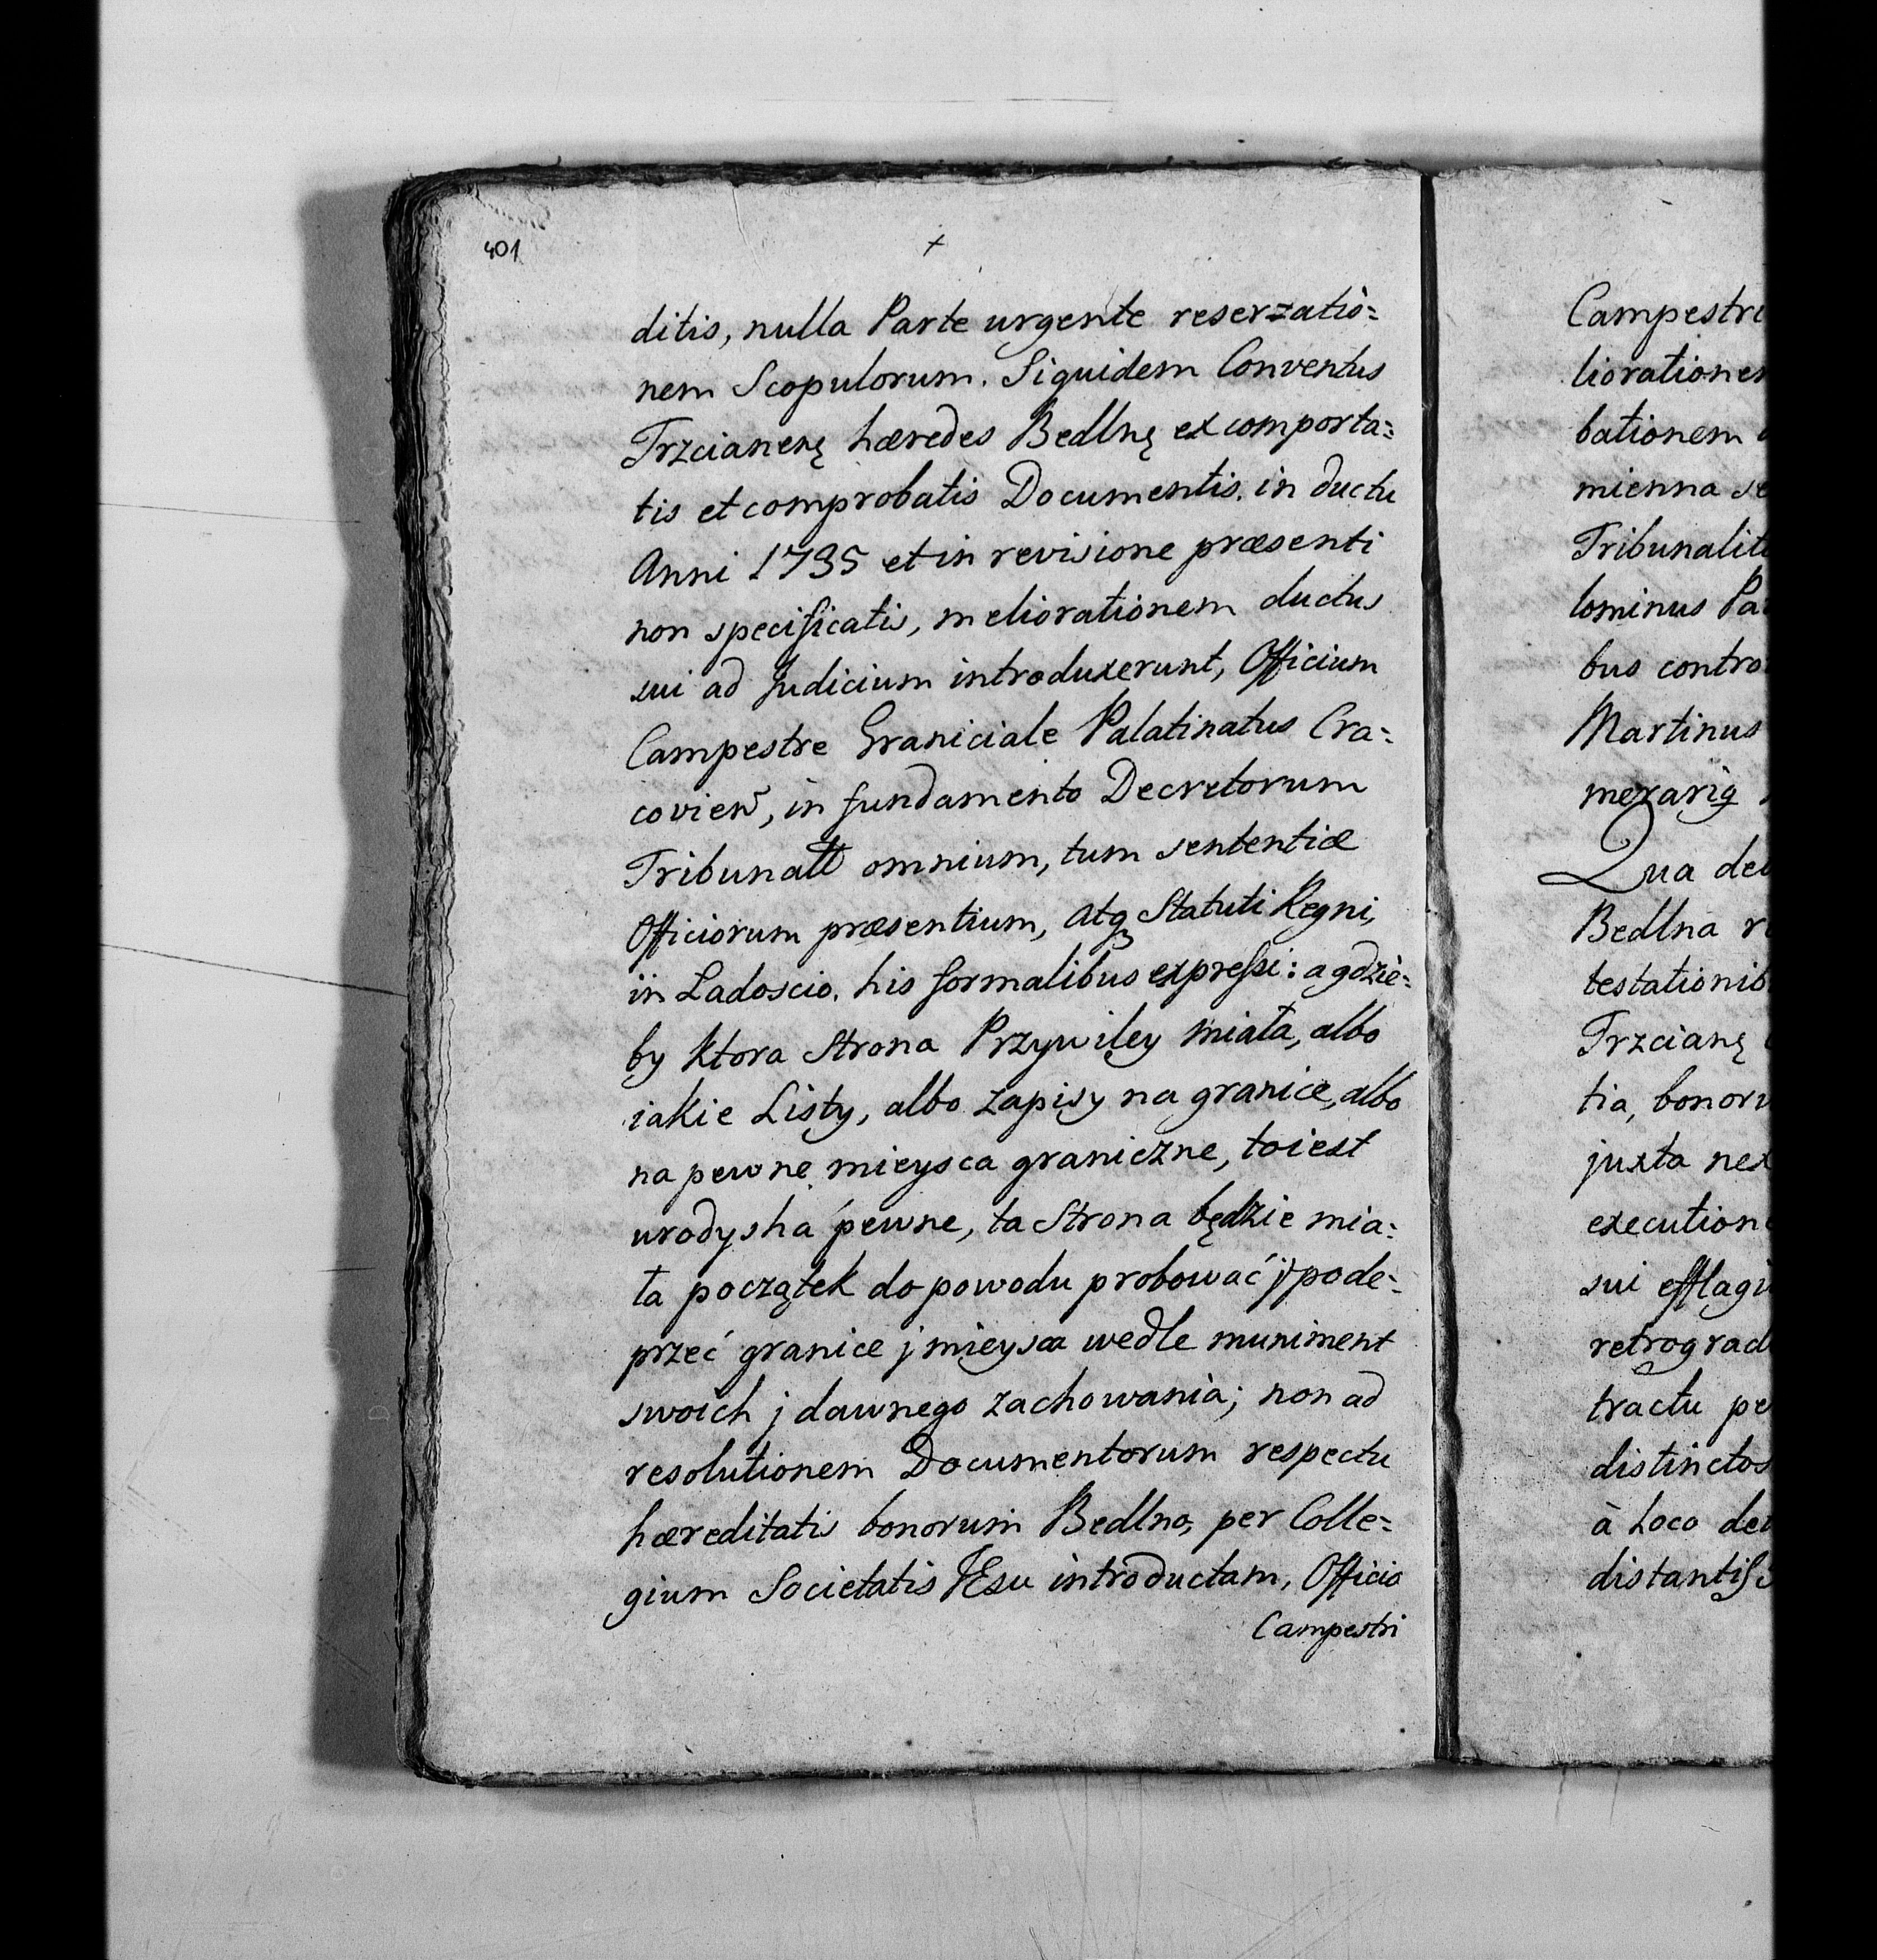 401
+
ditis, nulla Parte urgente reserzatio=
nem Scopulorum. Siquidem Conventus
Trzcianenę hæredes Bedlnę ex comporta=
tis et comprobatis Documentis. in ductu
Anni 1735 et in revisione præsenti
non specificatis, meliorationem ductus
sui ad Judicium introduxerunt, Officium
Campestre Graniciale Palatinatus Cra=
covien, in fundamento Decretorum
Tribunall omnium, tum sententiæ
Officiorum præsentium, atq Statuti Regni,
in Ladoscio. his formalibus expressi: a gdzie=
by ktora Strona Przywiley miała, albo
iakie Listy, albo zapisy na granice, albo
na pewne mieysca graniczne, to iest
urodysha pewne, ta Strona będzie mia=
ła początek do powodu probować j pode=
przeć granice j mieysca wedle muniment
swoich j dawnego zachowania; non ad
resolutionem Documentorum respectu
hæreditatis bonorum Bedlno, per Colle=
gium Societatis JEsu introductam, Officio
Campestri
Campestri
liorationem
bationem
mienna se
Tribunalit
lominus Pa
bus contro
Martinus
merariġ
Qua de
Bedlna r
testationib
Trzcianę
tia, bonoru
juxta nex
execution
sui efflagi
retrograd
tractu pe
distinctos
à Loco de
distantiſ